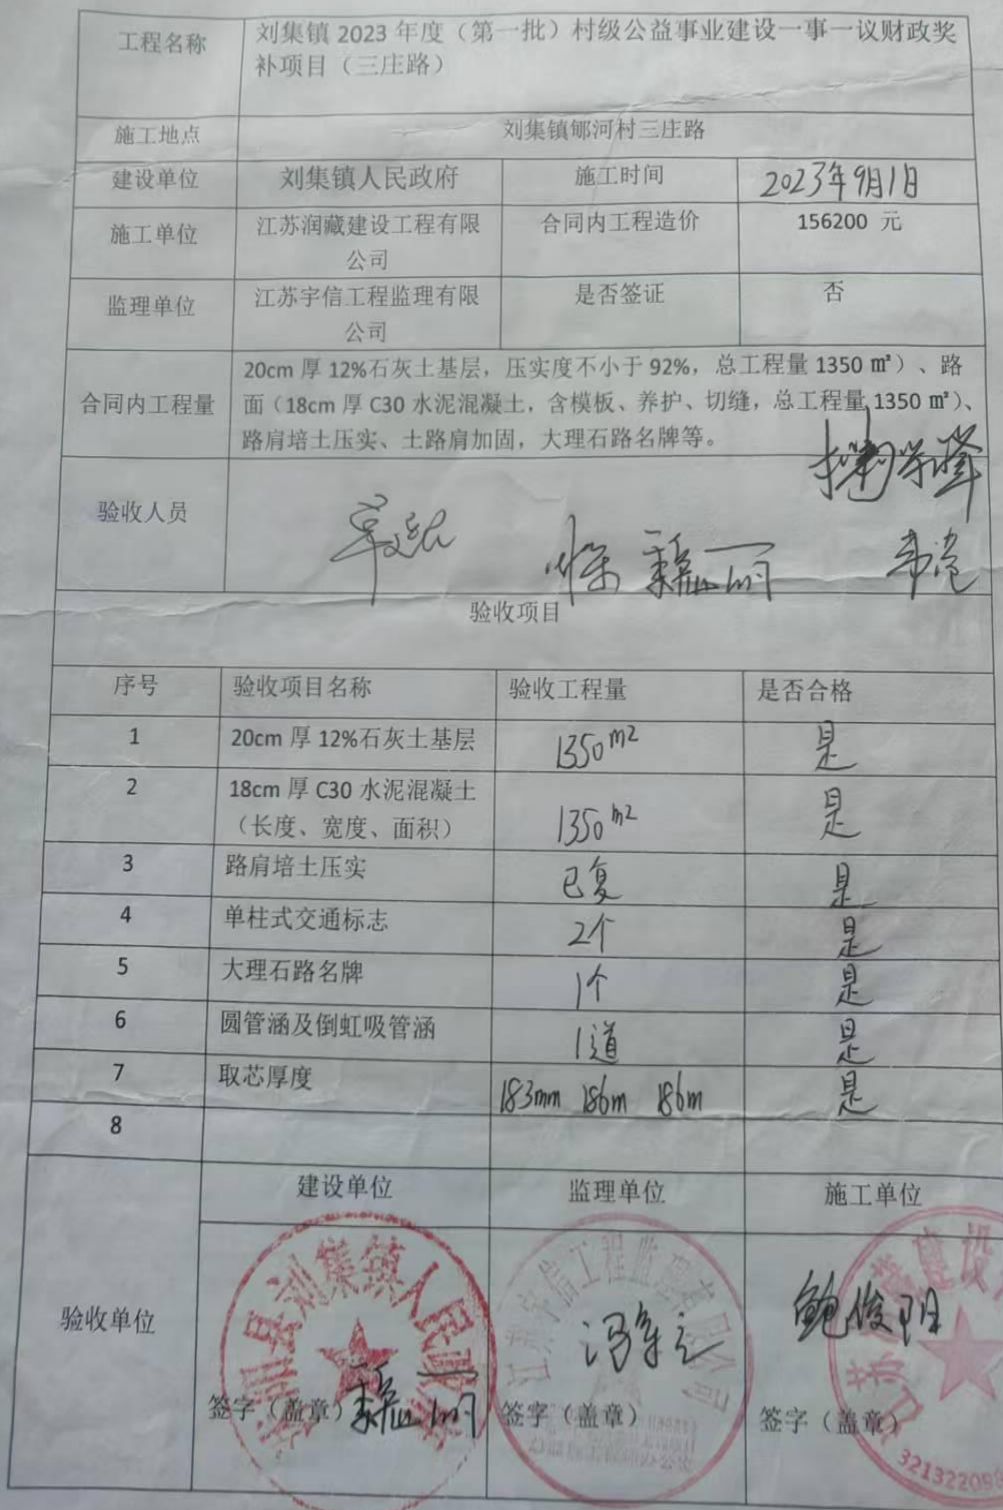 工程名称
刘集镇 2023 年度（第一批）村级公益事业建设一事一议财政奖
补项目（三庄路）
施工地点
刘集镇郇河村三庄路
建设单位
刘集镇人民政府
施工时间
2023年9月1日
施工单位
江苏润藏建设工程有限
公司
合同内工程造价
156200 元
监理单位
江苏宇信工程监理有限
公司
是否签证
否
合同内工程量
20cm 厚 12%石灰土基层，压实度不小于 92%，总工程量 1350 ㎡）、路
面（18cm 厚 C30 水泥混凝土，含模板、养护、切缝，总工程量 1350 ㎡）、
路肩培土压实、土路肩加固，大理石路名牌等。
验收人员
验收项目
序号
验收项目名称
验收工程量
是否合格
1
20cm 厚 12%石灰土基层
1350m2
是
2
18cm 厚 C30 水泥混凝土
（长度、宽度、面积）
1350m2
是
3
路肩培土压实
已复
是
4
单柱式交通标志
2个
是
5
大理石路名牌
1个
是
6
圆管涵及倒虹吸管涵
1道
是
7
取芯厚度
183mm 186m 186m
是
8
验收单位
建设单位
监理单位
施工单位
县刘集镇人民政府
江苏宇信工程监理有限公司
鲍俊阳
签字（盖章）
签字（盖章）
签字（盖章）